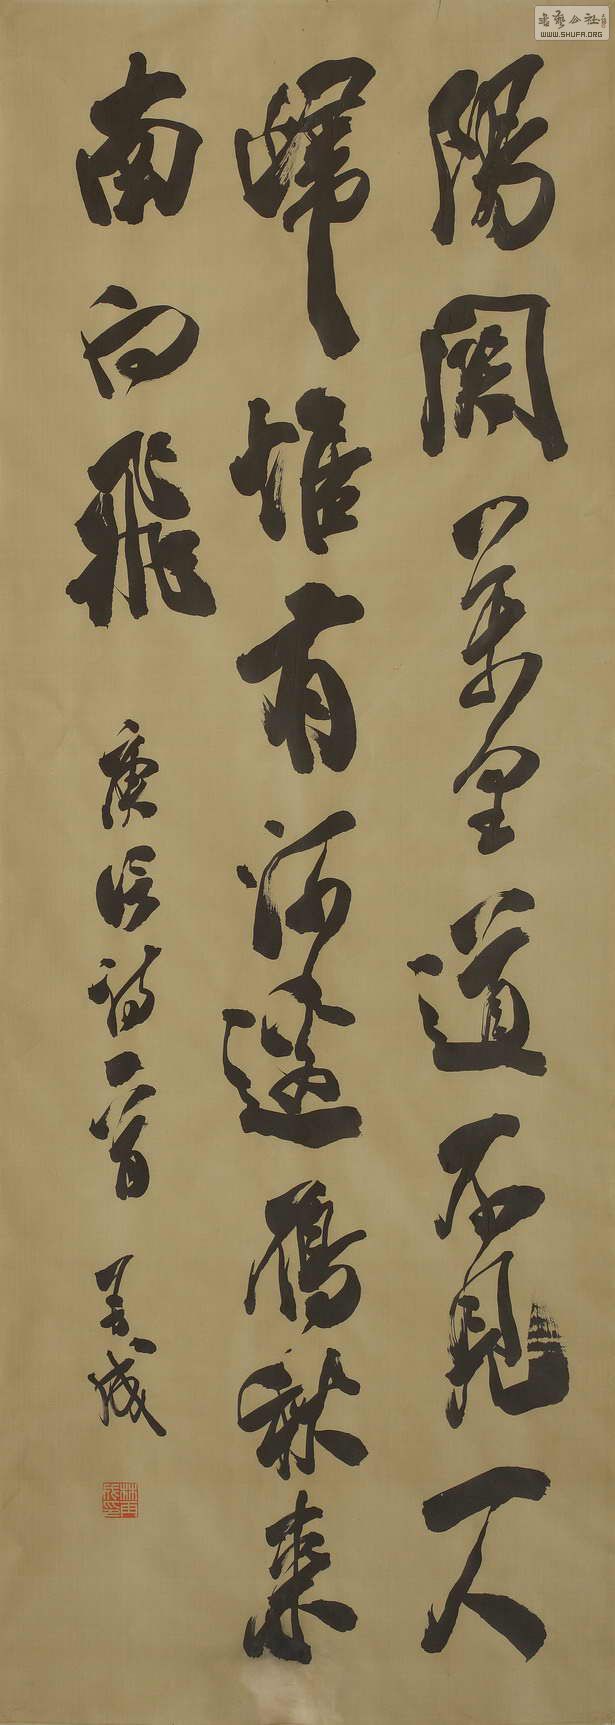 陽関萬里道不見一人
歸惟有河邊鴈秋来
南向飛
庾信詩一首
書藝公社
WWW.SHUFA.ORG